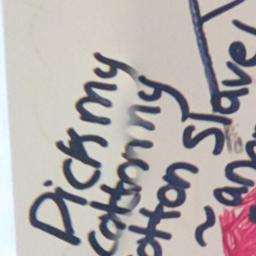 Dick my
cottonny
otton slave,
~ ano